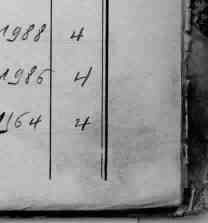 1988 4
1986 4
1964 4